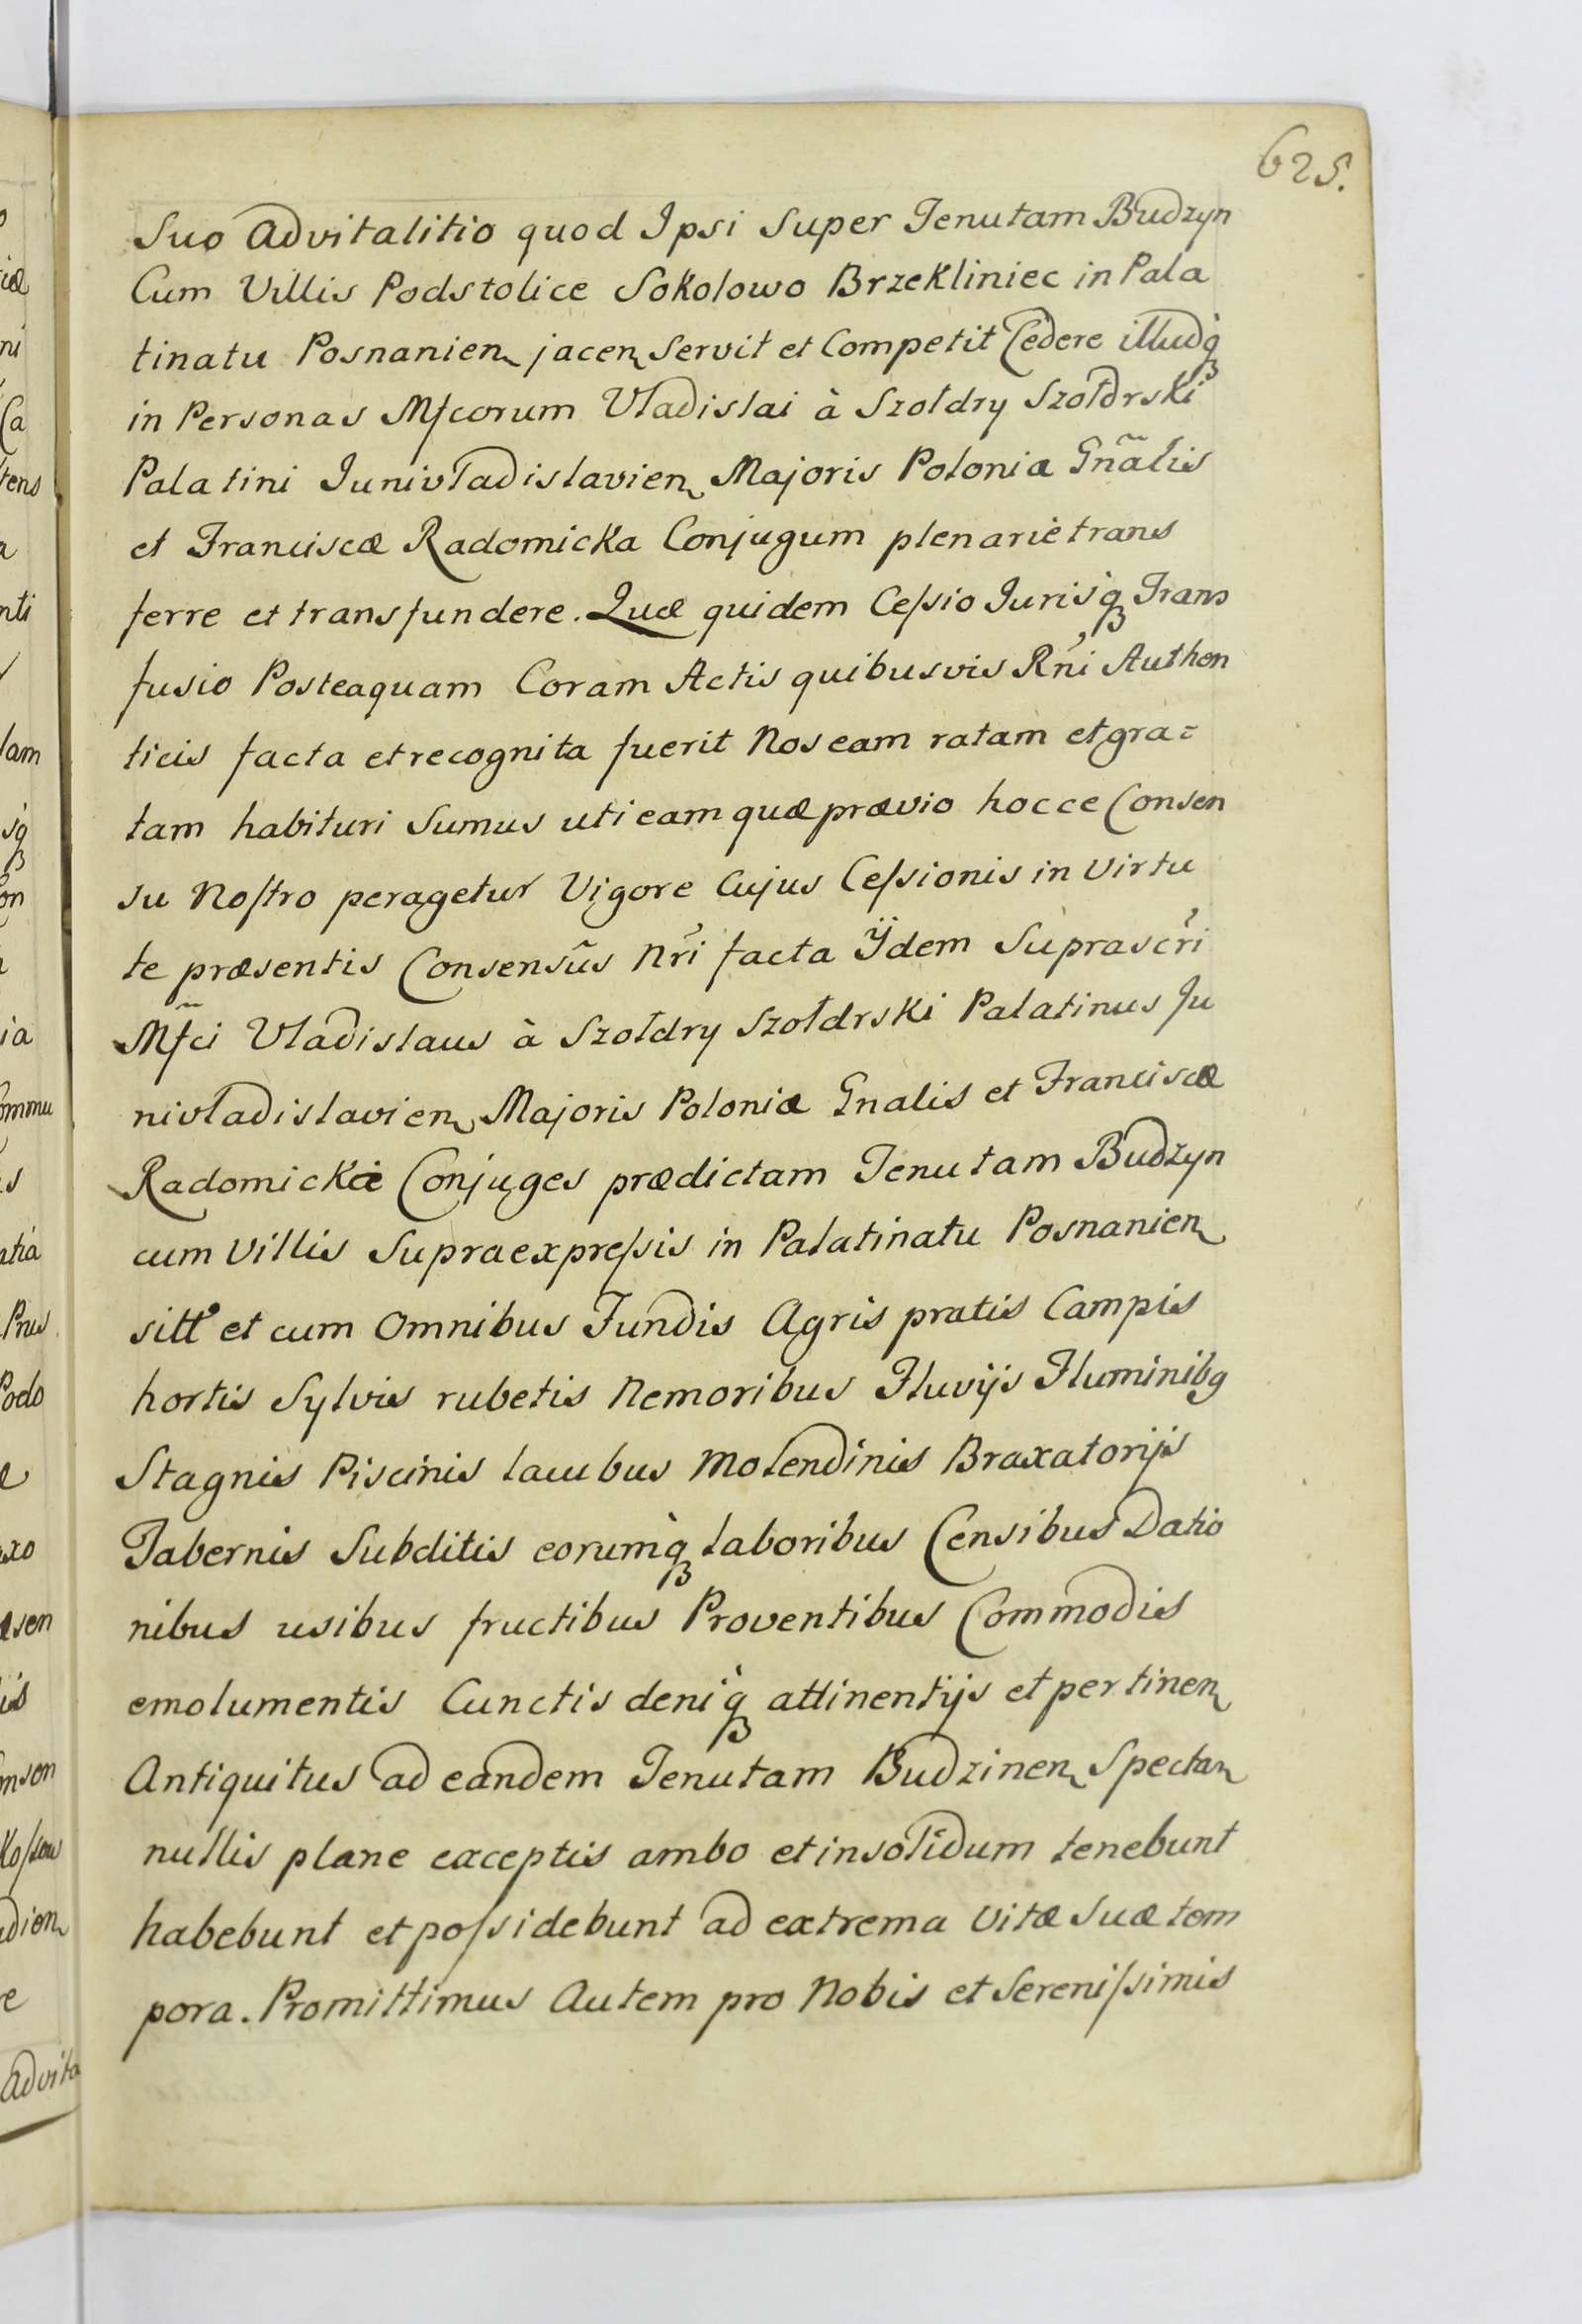 625.
Suo Advitalitio quod Ipsi Super Tenutam Budzyn
Cum Villis Podstolice Sokolowo Brzekliniec in Pala
tinatu Posnanien jacen Servit et Competit Cedere illudq
in Personas Mfcorum Vladislai à Szołdry Szołdrski
Palatini Junivladislavien Majoris Polonia Gñalis
et Franciscæ Radomicka Conjugum plenarie trans
ferre et transfundere. Quæ quidem Cessio Jurisq Trans
fusio Posteaquam Coram Actis quibusvis Rńi Authen
ticis facta et recognita fuerit Nos eam ratam et gra=
tam habituri Sumus uti eam quæ prævio hocce Consen
su Nostro peragetur Vigore Cujus Cessionis in Virtu
te præsentis Consensũs Nri facta Ÿdem Suprascri
Mfci Vladislaus à Szołdry Szołdrski Palatinus Ju
nivladislavien Majoris Poloniæ Gnalis et Franciscæ
Radomicka Conjuges prædictam Tenutam Budzyn
cum Villis Supraexpressis in Palatinatu Posnanien
sitt et cum Omnibus Fundis Agris pratis Campis
hortis Sylvis rubetis Nemoribus Fluvijs Fluminibg
Stagnis Piscinis lacubus Molendinis Braxatorijs
Tabernis Subditis eorumq laboribus Censibus Datio
nibus usibus fructibus Proventibus Commodis
emolumentis Cunctis deniq attinentijs et pertinen
Antiquitus ad eandem Tenutam Budzinen Spectan
nullis plane exceptis ambo et insolidum tenebunt
habebunt et possidebunt ad extrema Vitæ Suæ tem
pora. Promittimus Autem pro Nobis et Serenissimis